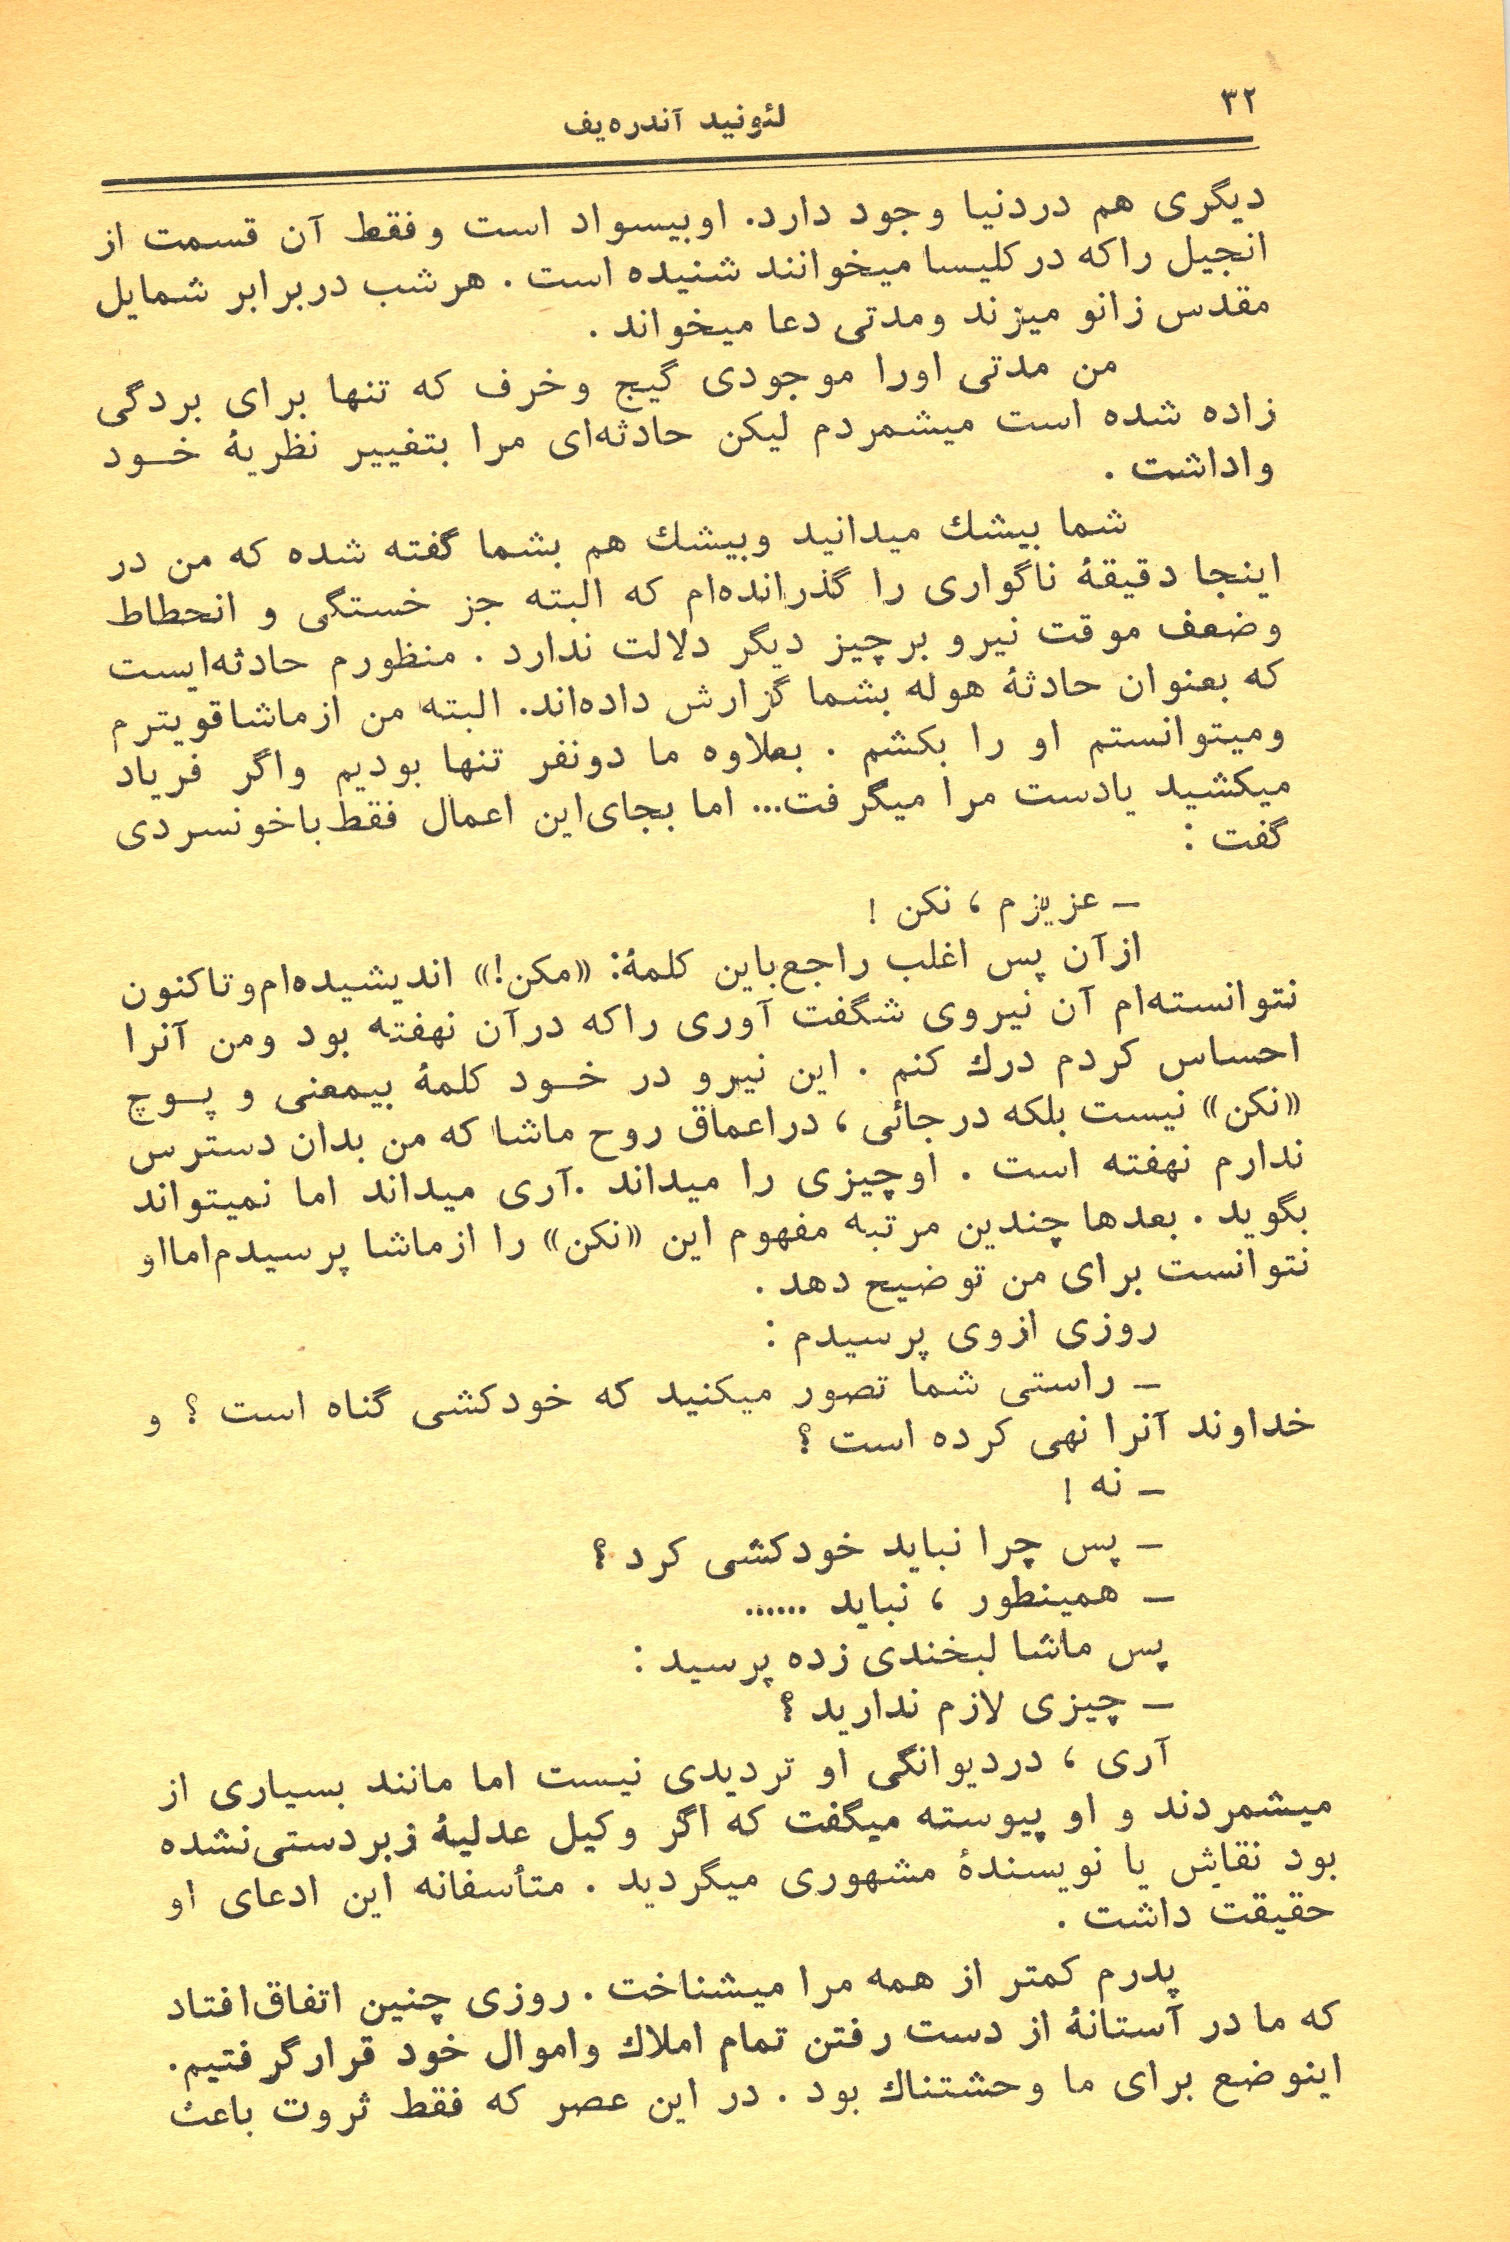 ۳۲
لئونید آندره‌یف
دیگری هم دردنیا وجود دارد. اوبیسواد است وفقط آن قسمت از
انجیل راکه درکلیسا میخوانند شنیده است . هرشب دربرابر شمایل
مقدس زانو میزند ومدتی دعا میخواند .
من مدتی اورا موجودی گیج وخرف که تنها برای بردگی
زاده شده است میشمردم لیکن حادثه‌ای مرا بتغییر نظریهٔ خود
واداشت .
شما بیشك میدانید وبیشك هم بشما گفته شده که من در
اینجا دقیقهٔ ناگواری را گذرانده‌ام که البته جز خستگی و انحطاط
وضعف موقت نیرو برچیز دیگر دلالت ندارد . منظورم حادثه‌ایست
که بعنوان حادثهٔ هوله بشما گزارش داده‌اند. البته من ازماشاقویترم
ومیتوانستم او را بکشم . بعلاوه ما دونفر تنها بودیم واگر فریاد
میکشید یادست مرا میگرفت... اما بجای‌این اعمال فقط‌باخونسردی
گفت :
ـ عزیزم ، نکن !
ازآن پس اغلب راجع‌باین کلمهٔ: «مکن!» اندیشیده‌ام‌وتاکنون
نتوانسته‌ام آن نیروی شگفت آوری راکه درآن نهفته بود ومن آنرا
احساس کردم درك کنم . این نیرو در خود کلمهٔ بیمعنی و پوچ
«نکن» نیست بلکه درجائی ، دراعماق روح ماشا که من بدان دسترس
ندارم نهفته است . اوچیزی را میداند .آری میداند اما نمیتواند
بگوید . بعدها چندین مرتبه مفهوم این «نکن» را ازماشا پرسیدم‌امااو
نتوانست برای من توضیح دهد .
روزی ازوی پرسیدم :
ـ راستی شما تصور میکنید که خودکشی گناه است ؟ و
خداوند آنرا نهی کرده است ؟
ـ نه !
ـ پس چرا نباید خودکشی کرد ؟
ـ همینطور ، نباید ......
پس ماشا لبخندی زده پرسید :
ـ چیزی لازم ندارید ؟
آری ، دردیوانگی او تردیدی نیست اما مانند بسیاری از
میشمردند و او پیوسته میگفت که اگر وکیل عدلیهٔ زبردستی‌نشده
بود نقاش یا نویسندهٔ مشهوری میگردید . متأسفانه این ادعای او
حقیقت داشت .
پدرم کمتر از همه مرا میشناخت . روزی چنین اتفاق‌افتاد
که ما در آستانهٔ از دست رفتن تمام املاك واموال خود قرارگرفتیم.
اینوضع برای ما وحشتناك بود . در این عصر که فقط ثروت باعث